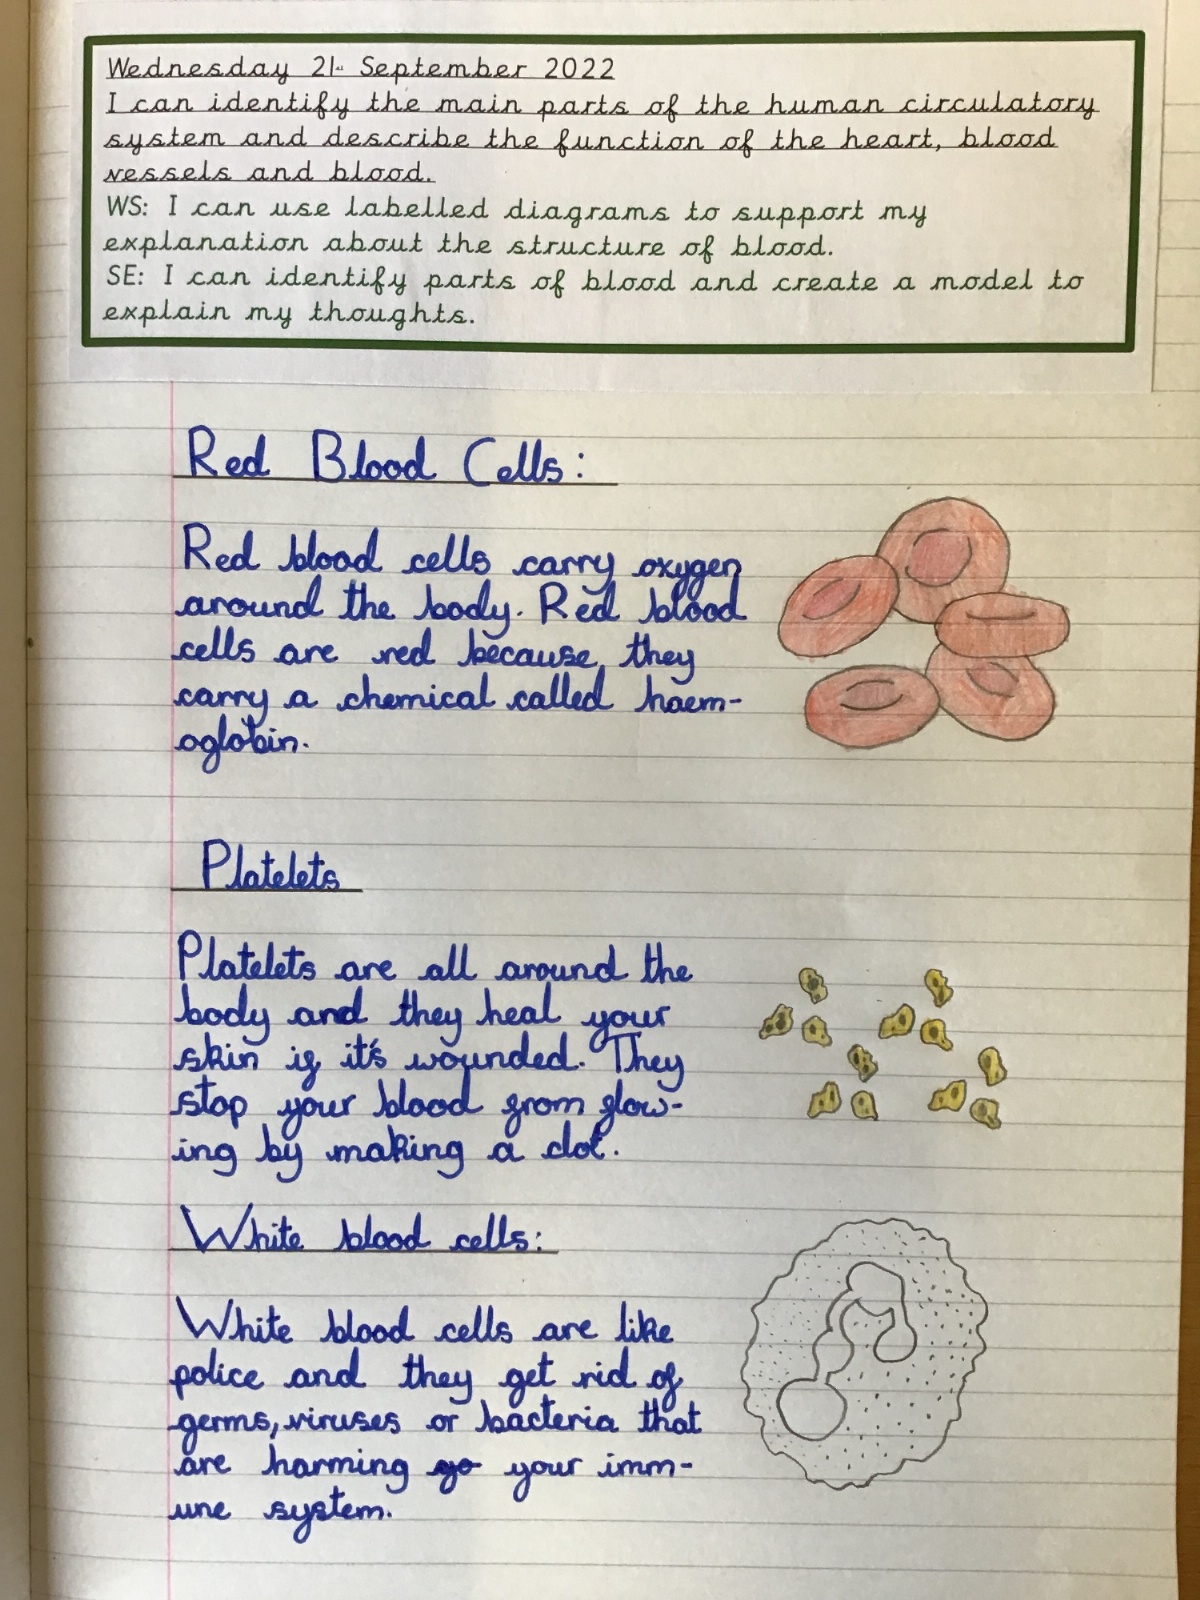 Wednesday 21st September 2022
I can identify the main parts of the human circulatory
system and describe the function of the heart, blood
vessels and blood.
WS: I can use labelled diagrams to support my
explanation about the structure of blood.
SE: I can identify parts of blood and create a model to
explain my thoughts.
Red Blood Cells:
Red blood cells carry oxygen
around the body. Red blood
cells are red because, they
carry a chemical called haem-
oglobin.
Platelets
Platelets are all around the
body and they heal your
skin if it's wounded. They
stop your blood from glow-
ing by making a clot.
White blood cells:
White blood cells are like
police and they get rid of
germs, viruses or bacteria that
are harming go your imm-
une system.